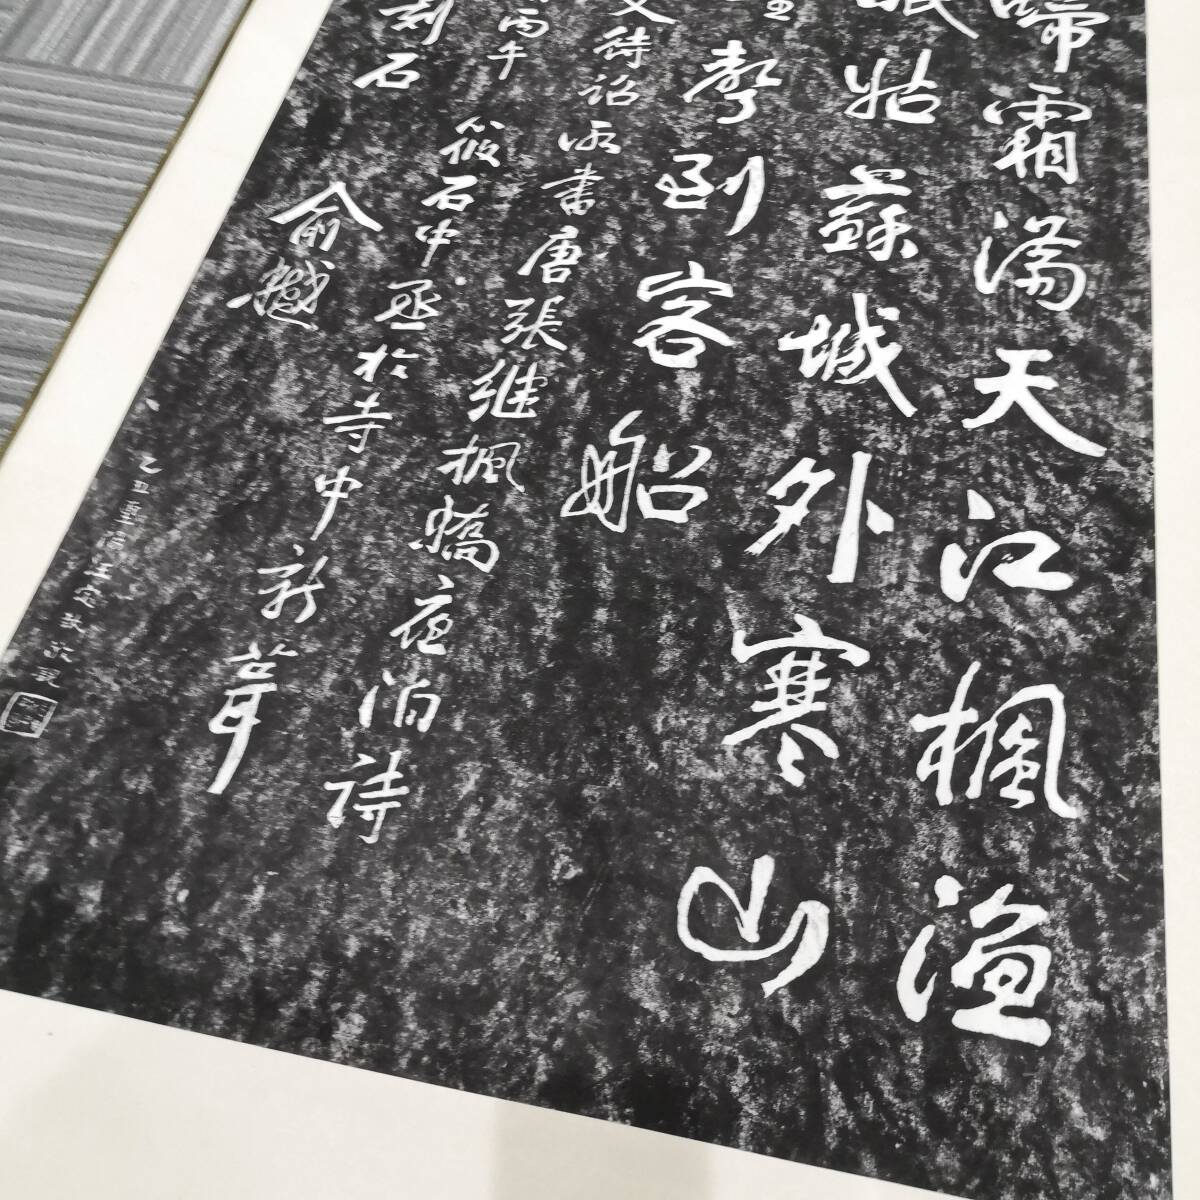 啼霜满天江楓漁
眠姑蘇城外寒山
聲到客船
文待詔所書唐張継楓橋夜泊詩
丙午筱石中丞於寺中新葺
刻石俞樾
乙丑重陽